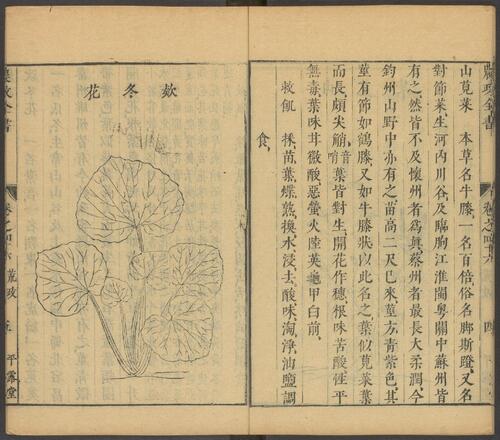 農政全書
卷之四十六 荒政
四
山莧菜 本草名牛膝一名百倍俗名脚斯蹬又名
對節菜生河內川谷及臨朐江淮閩粵關中蘇州皆
有之然皆不及懷州者爲眞蔡州者最長大柔潤今
鈞州山野中亦有之苗高二尺已來莖方青紫色其
莖有節如鶴膝又如牛膝狀以此名之葉似莧菜葉
而長頗尖艄音哨葉皆對生開花作穗根味苦酸性平
無毒葉味甘微酸惡螢火陸英龜甲白前
救飢 採苗葉煠熟換水浸去酸味淘淨油鹽調
食
款冬花
農政全書
卷之四十六 荒政
五
平露堂